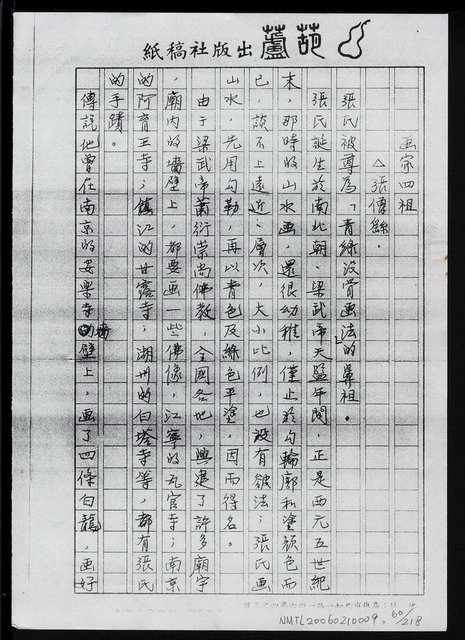 葫蘆出版社稿紙
画家四祖
△張僧繇。
張氏被尊為「青綠沒骨画法」的鼻祖。
張氏誕生於南北朝、梁武帝天監年間，正是西元五世紀
末，那時的山水画，還很幼稚，僅止於勾輪廓和塗顏色而
已，談不上遠近、層次，大小比例，也沒有皴法；張氏画
山水，先用勾勒，再以青色及綠色平塗，因而得名。
由于梁武帝蕭衍崇尚佛教，全國各地，興建了許多廟宇
，廟内的墻壁上，都要画一些佛像，江寧的瓦官寺；南京
的阿育王寺；鎮江的甘露寺；湖州的白塔寺等，都有張氏
的手蹟。
傳說他曾在南京的安樂寺的墻壁上，画了四條白龍，画好
NMTL20060210009, 60/218